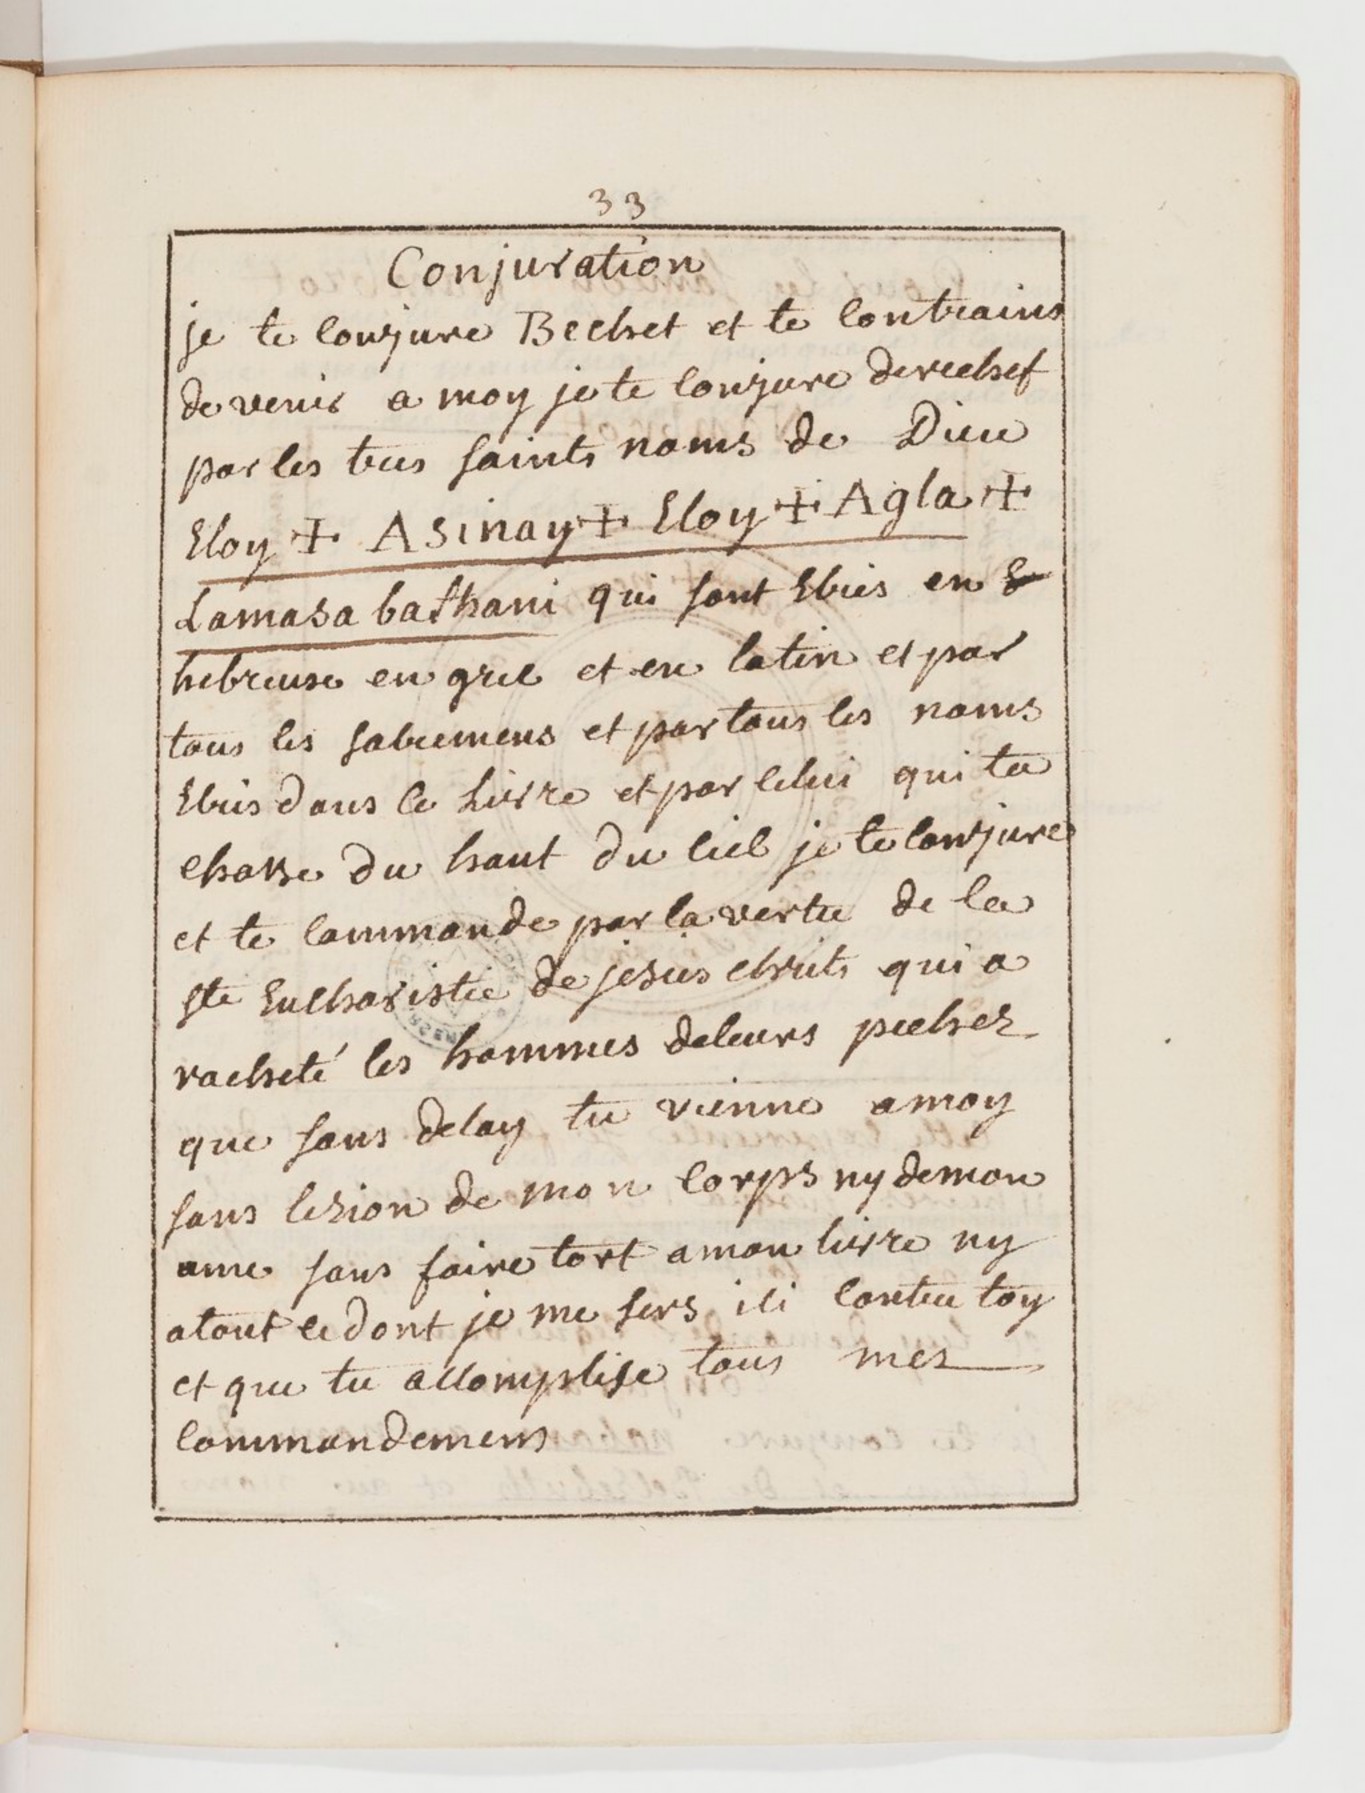 33
Conjuration
je te conjure Bechet et te contrains
de venir a moy je te conjure derechef
par les tres saints noms de Dieu
Eloy + Asinay + Eloy + Agla +
Lamasabathani qui sont Ecris en
hebreuse en grec et en latin et par
tous les sacremens et par tous les noms
Ecris dans ce Livre et par celui qui ta
chasse du haut du ciel je te conjure
et te commande par la vertu de la
ste Eucharistie de jesus christ qui a
racheté les hommes de leurs pechez
que sans delay tu vienne a moy
sans lezion de mon corps ny de mon
ame sans faire tort a mon livre ny
a tout ce dont je me sers ici contre toy
et que tu accomplise tous mes
commandemens